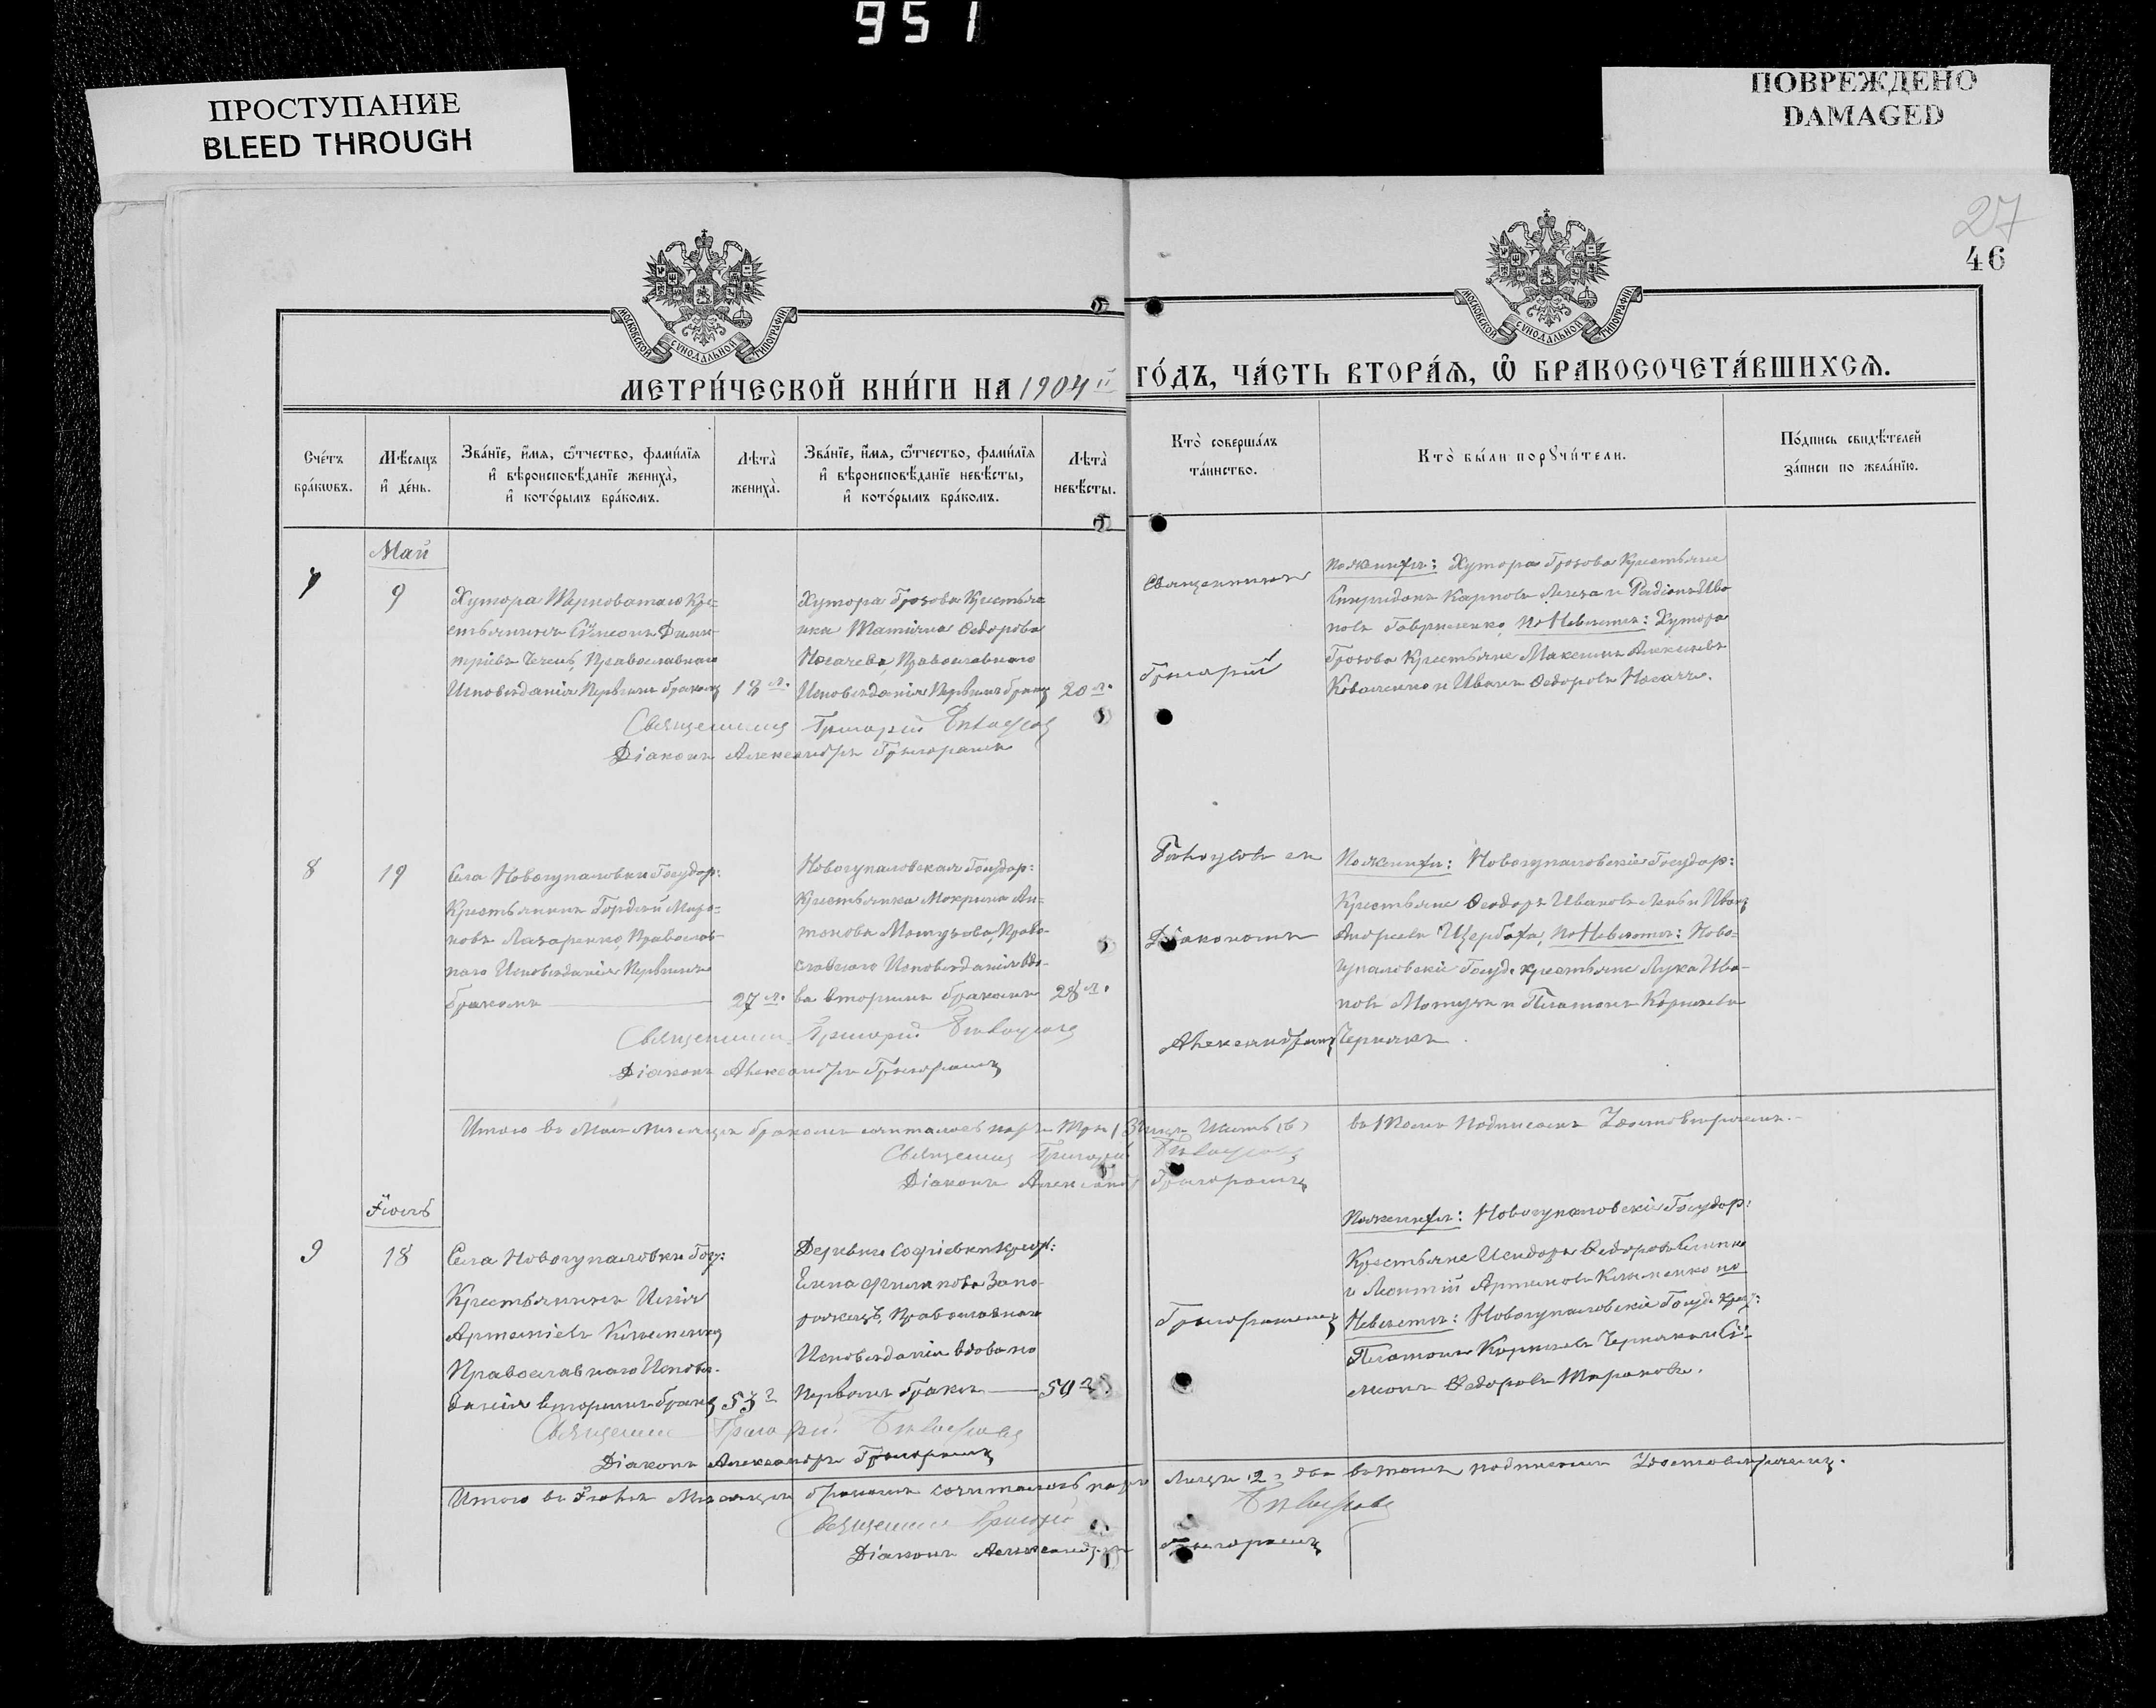 951
ПРОСТУПАНИЕ
BLEED THROUGH
ПОВРЕЖДЕНО
DAMAGED
27
46
МОСКОВСКОЙ СѴНОДАЛЬНОЙ ТИПОГРАФІИ
МОСКОВСКОЙ СѴНОДАЛЬНОЙ ТИПОГРАФІИ
МЕТРИ́ЧЕСКОЙ КНИ́ГИ НА 1904й ГО́ДЪ, ЧА́СТЬ ВТОРА́Ѧ, Ѽ БРАКОСОЧЕТА́ВШИХСѦ.
Сче́тъ
бра́кѡвъ.
Мѣсяцъ
и҆ де́нь.
Зва́нїе, и҆́мѧ, ѻ҆́тчество, фами́лїѧ
и҆ вѣроисповѣ́данїе жениха̀,
и҆ кото́рымъ бра́комъ.
Лѣта̀
жениха̀.
Зва́нїе, и҆́мѧ, ѻ҆́тчество, фами́лїѧ
и҆ вѣроисповѣ́данїе невѣ́сты,
и҆ кото́рымъ бра́комъ.
Лѣта̀
невѣ́сты.
Кто̀ соверша́лъ
та́инство.
Кто̀ бы́ли порꙋчи́тели.
По́дпись свидѣ́телей
за́писи по жела́нїю.
Май
7
9
Хутора Терноватаго Кре=
стьянинъ Симеонъ Дими-
тріевъ Чечель, Православнаго
Исповѣданія Первымъ бракомъ
18 л.
Хутора Грозова Крестьян
ка Татіана Ѳедорова
Носачева, Православнаго
Исповѣданія Первымъ бракомъ
20 л.
Священникъ
Григорій
По женихѣ: Хутора Грозова Крестьяне
Спиридонъ Карповъ Лыза и Радіонъ Ива
новъ Гавриленко, по Невѣстѣ: Хутора
Грозова Крестьяне Максимъ Алексѣевъ
Коваленко и Иванъ Ѳедоровъ Носачъ.
Священникъ Григорій
Діаконъ Александръ Григорашъ
8
19
Села Новогупаловки Государ:
Крестьянинъ Гордѣй Миро=
новъ Лазаренко, Православ-
наго Исповѣданія Первымъ
бракомъ
27 л.
Новогупаловская Государ:
Крестьянка Мокрина Ан-
тонова Мотузова, Право-
славнаго Исповѣданія вдо-
ва вторымъ бракомъ
28 л.
съ
Діакономъ
Александромъ
По женихѣ: Новогупаловскіе Государ:
Крестьяне Ѳеодоръ Ивановъ Лень и Иванъ
Андреевъ Щербака, по Невѣстѣ: Ново=
гупаловскіе Госуд. крестьяне Лука Ива-
новъ Мотузъ и Платонъ Корнѣевъ
Чернякъ
Священникъ Григорій
Діаконъ Александръ Григорашъ
Итого въ Маѣ Мѣсяцѣ бракомъ сочталось паръ Три (3) лицъ Шесть (6) въ томъ Подписомъ Удостовѣряемъ.
Священникъ Григорій
Діаконъ Александръ Григорашъ
Іюль
9
18
Села Новогупаловки Госу:
Крестьянинъ Илія
Артеміевъ Клименко
Православнаго Исповѣ-
данія вторымъ бракомъ
53 г.
Деревни Софіевки Крест:
Елена Филипова Запо-
рожецъ, Православнаго
Исповѣданія вдова по
первомъ бракѣ
50 л.
Григорашемъ
По женихѣ: Новогупаловскіе Государ:
Крестьяне Исидоръ Ѳедоровъ
и Леонтій Артемовъ Клименко по
Невѣстѣ: Новогупаловскіе Госуд. Крест:
Платонъ Корнѣевъ Чернякъ и Си-
меонъ Ѳедоровъ Тарановъ.
Священникъ Григорій
Діаконъ Александръ Григорашъ
Итого въ Іюлѣ Мѣсяцѣ бракомъ сочталось пара Лицъ 2 два въ томъ подписомъ Удостовѣряемъ.
Священникъ Григорій
Діаконъ Александръ Григорашъ